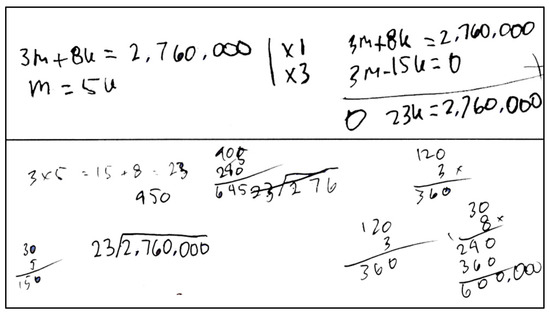 3m+8k = 2,760,000 | x1
m = 5k | x3
3m+8k = 2,760,000
3m-15k = 0 +
0 23k = 2,760,000
3x5 = 15+8 = 23
450
405
240
645
23/276
120
3 x
360
30
5
150
23/2,760,000
120
3
360
30
8 x
240
360
600,000